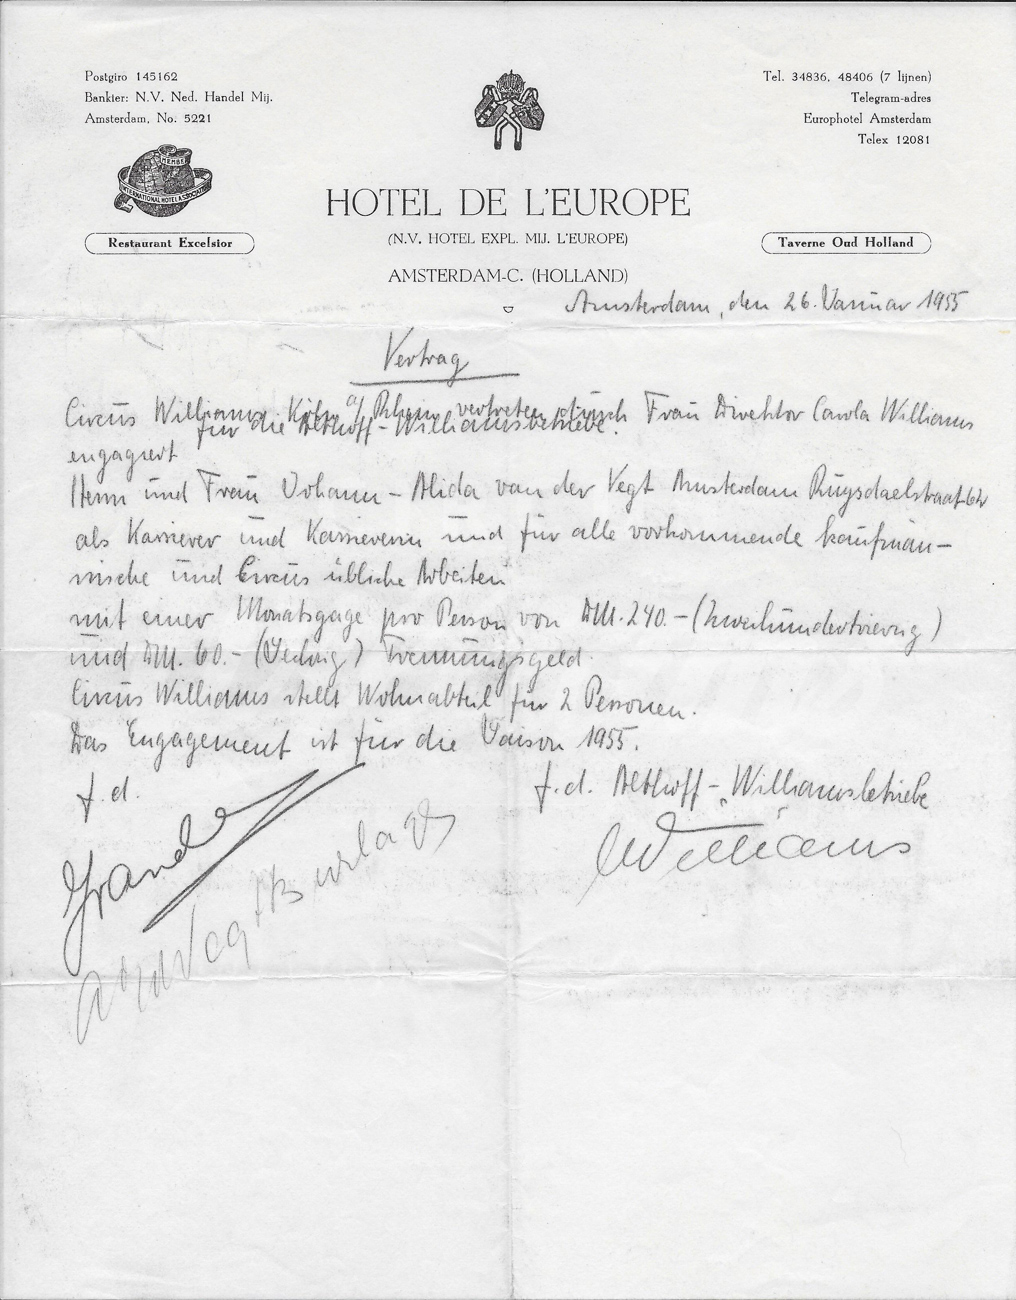 Postgiro 145162
Bankier: N.V. Ned. Handel Mij.
Amsterdam, No. 5221
Tel. 34836, 48406 (7 lijnen)
Telegram-adres
Europhotel Amsterdam
Telex 12081
MEMBER
INTERNATIONAL HOTEL ASSOCIATION
HOTEL DE L'EUROPE
(N.V. HOTEL EXPL. MIJ. L'EUROPE)
AMSTERDAM-C. (HOLLAND)
Restaurant Excelsior
Taverne Oud Holland
Amsterdam, den 26. Januar 1955
Vertrag
Circus Williams Köln a/ Rhein vertreten durch Frau Direktor Carola Williams
für die Althoff-Williamsbetriebe.
engagiert
Herrn und Frau Johann - Alida van der Vegt Amsterdam Ruysdaelstraat
als Kassierer und Kassiererin und für alle vorkommende kaufmän-
nische und Circus übliche Arbeiten
mit einer Monatsgage pro Person von DM. 240.- (Zweihundertvierzig)
und DM. 60.- (Sechzig) Trennungsgeld.
Circus Williams stellt Wohnabteil für 2 Personen.
Das Engagement ist für die Saison 1955.
f. d.
f. d. Althoff-Williamsbetriebe
Williams